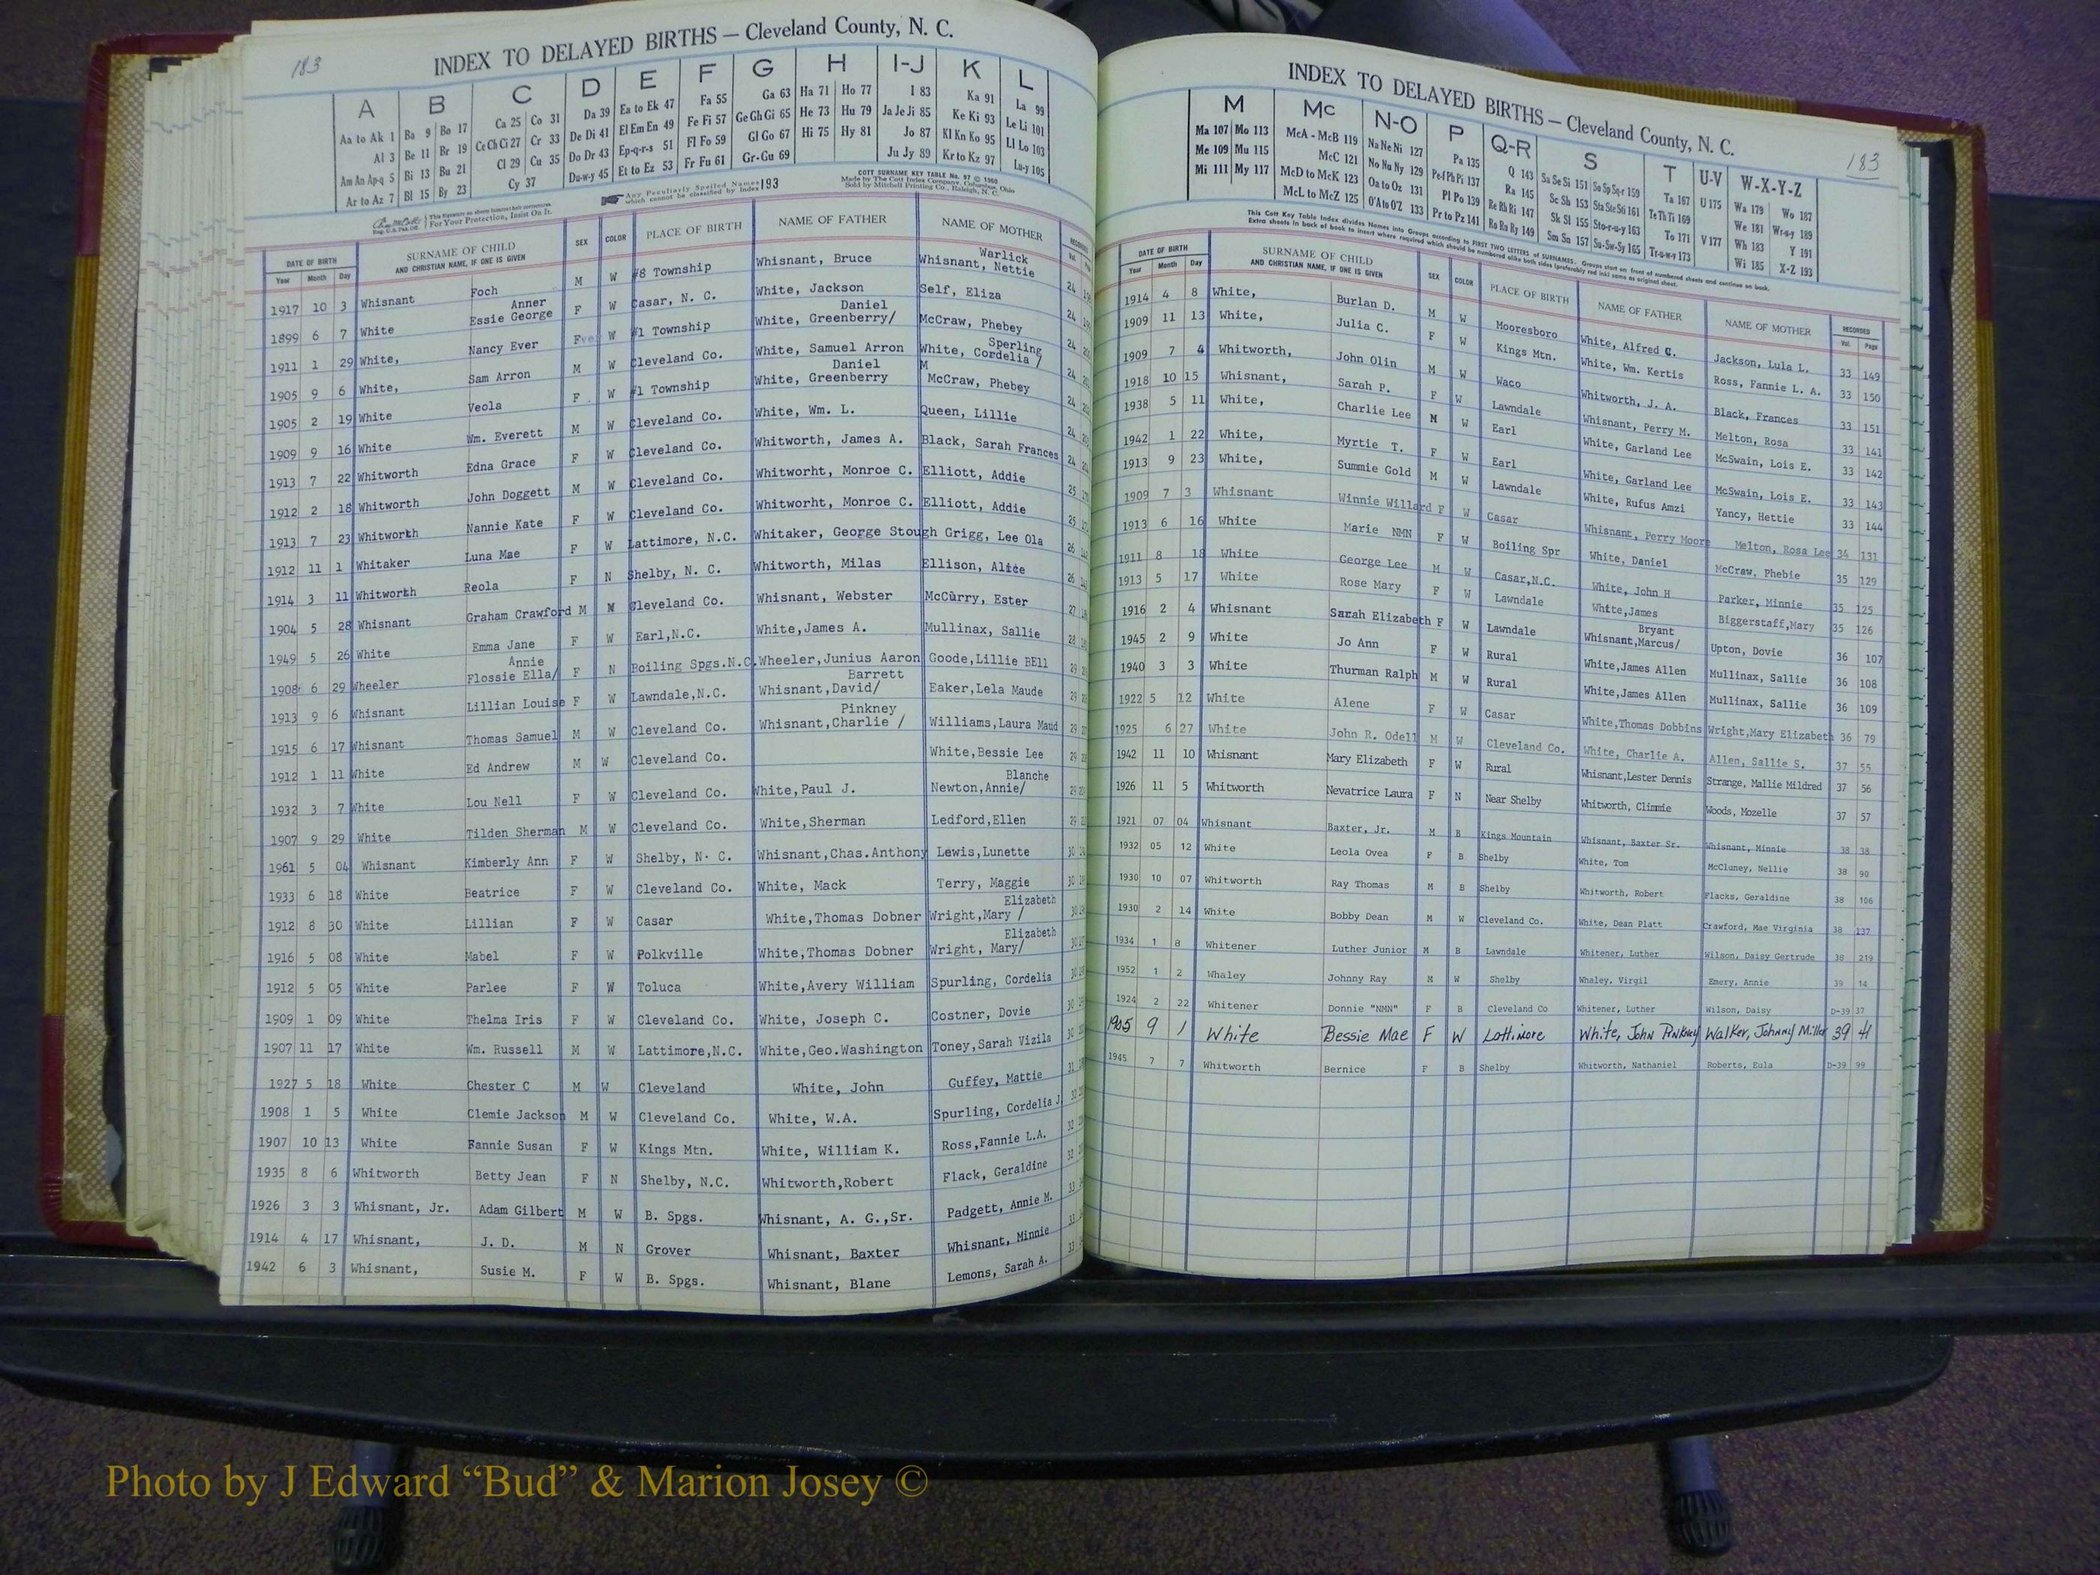 183
INDEX TO DELAYED BIRTHS — Cleveland County, N. C.
A B C D E F G H I-J K L
Aa to Ak 1 Ba 9 Bo 17 Ca 25 Co 31 Da 39 Ea to Ek 47 Fa 55 Ga 63 Ha 71 Ho 77 I 83 Ka 91 La 99
Al 3 Be 11 Br 19 Ce Ch Ci 27 Cr 33 De Di 41 El Em En 49 Fe Fi 57 Ge Gh Gi 65 He 73 Hu 79 Ja Je Ji 85 Ke Ki 93 Le Li 101
Am An Ap-q 5 Bi 13 Bu 21 Cl 29 Cu 35 Do Dr 43 Ep-q-r-s 51 Fl Fo 59 Gl Go 67 Hi 75 Hy 81 Jo 87 Kl Kn Ko 95 Ll Lo 103
Ar to Az 7 Bl 15 By 23 Cy 37 Du-w-y 45 Et to Ez 53 Fr Fu 61 Gr-Gu 69 Ju Jy 89 Kr to Kz 97 Lu-y 105
For Your Protection, Insist On It.
Any Peculiarly Spelled Names which cannot be classified by Index 193
COTT SURNAME KEY TABLE No. 97 © 1960
Made by The Cott Index Company, Columbus, Ohio
Sold by Mitchell Printing Co., Raleigh, N. C.
DATE OF BIRTH SURNAME OF CHILD SEX COLOR PLACE OF BIRTH NAME OF FATHER NAME OF MOTHER RECORDED
Year Month Day AND CHRISTIAN NAME, IF ONE IS GIVEN Vol.
1917 10 3 Whisnant Foch M W #8 Township Whisnant, Bruce Whisnant, Nettie Warlick 24
1899 6 7 White Essie George Anner F W Casar, N. C. White, Jackson Self, Eliza 24
1911 1 29 White, Nancy Ever F W #1 Township White, Greenberry/ Daniel McCraw, Phebey 24
1905 9 6 White, Sam Arron M W Cleveland Co. White, Samuel Arron White, Cordelia / Sperling 24
1905 2 19 White Veola F W #1 Township White, Greenberry Daniel McCraw, Phebey M 24
1909 9 16 White Wm. Everett M W Cleveland Co. White, Wm. L. Queen, Lillie 24
1913 7 22 Whitworth Edna Grace F W Cleveland Co. Whitworth, James A. Black, Sarah Frances 24
1912 2 18 Whitworth John Doggett M W Cleveland Co. Whitworht, Monroe C. Elliott, Addie 25
1913 7 23 Whitworth Nannie Kate F W Cleveland Co. Whitworht, Monroe C. Elliott, Addie 25
1912 11 1 Whitaker Luna Mae F W Lattimore, N.C. Whitaker, George Stough Grigg, Lee Ola 26
1914 3 11 Whitworth Reola F N Shelby, N. C. Whitworth, Milas Ellison, Alice 26
1904 5 28 Whisnant Graham Crawford M W Cleveland Co. Whisnant, Webster McCurry, Ester 27
1949 5 26 White Emma Jane F W Earl,N.C. White,James A. Mullinax, Sallie 28
1908 6 29 Wheeler Flossie Ella/ Annie F N Boiling Spgs.N.C. Wheeler,Junius Aaron Goode,Lillie BEll 29
1913 9 6 Whisnant Lillian Louise F W Lawndale,N.C. Whisnant,David/ Barrett Eaker,Lela Maude 29
1915 6 17 Whisnant Thomas Samuel M W Cleveland Co. Whisnant,Charlie / Pinkney Williams,Laura Maud 29
1912 1 11 White Ed Andrew M W Cleveland Co. White,Bessie Lee 29
1932 3 7 White Lou Nell F W Cleveland Co. White,Paul J. Newton,Annie/ Blanche 29
1907 9 29 White Tilden Sherman M W Cleveland Co. White,Sherman Ledford,Ellen 29
1961 5 04 Whisnant Kimberly Ann F W Shelby, N. C. Whisnant,Chas.Anthony Lewis,Lunette 30
1933 6 18 White Beatrice F W Cleveland Co. White, Mack Terry, Maggie 30
1912 8 30 White Lillian F W Casar White,Thomas Dobner Wright,Mary / Elizabeth 30
1916 5 08 White Mabel F W Polkville White,Thomas Dobner Wright, Mary/ Elizabeth 30
1912 5 05 White Parlee F W Toluca White,Avery William Spurling, Cordelia 30
1909 1 09 White Thelma Iris F W Cleveland Co. White, Joseph C. Costner, Dovie 30
1907 11 17 White Wm. Russell M W Lattimore,N.C. White,Geo.Washington Toney,Sarah Vizila 30
1927 5 18 White Chester C M W Cleveland White, John Guffey, Mattie 31
1908 1 5 White Clemie Jackson M W Cleveland Co. White, W.A. Spurling, Cordelia J. 30
1907 10 13 White Fannie Susan F W Kings Mtn. White, William K. Ross,Fannie L.A. 32
1935 8 6 Whitworth Betty Jean F N Shelby, N.C. Whitworth,Robert Flack, Geraldine 32
1926 3 3 Whisnant, Jr. Adam Gilbert M W B. Spgs. Whisnant, A. G.,Sr. Padgett, Annie M. 33
1914 4 17 Whisnant, J. D. M N Grover Whisnant, Baxter Whisnant, Minnie 33
1942 6 3 Whisnant, Susie M. F W B. Spgs. Whisnant, Blane Lemons, Sarah A. 33
INDEX TO DELAYED BIRTHS — Cleveland County, N. C.
183
M Mc N-O P Q-R S T U-V W-X-Y-Z
Ma 107 Mo 113 McA - McB 119 Na Ne Ni 127 Pa 135 Q 143 Sa Se Si 151 So Sp Sq-r 159 Ta 167 U 175 Wa 179 Wo 187
Me 109 Mu 115 McC 121 No Nu Ny 129 Pe-f Ph Pi 137 Ra 145 Sc Sh 153 Sta Ste Sti 161 Te Th Ti 169 We 181 Wr-u-y 189
Mi 111 My 117 McD to McK 123 Oa to Oz 131 Pl Po 139 Re Rh Ri 147 Sk Sl 155 Sto-r-u-y 163 To 171 V 177 Wh 183 Y 191
McL to McZ 125 O'A to O'Z 133 Pr to Pz 141 Ro Ru Ry 149 Sm Sn 157 Su-Sw-Sy 165 Tr-u-w-y 173 Wi 185 X-Z 193
This Cott Key Table Index divides Names into Groups according to FIRST TWO LETTERS of SURNAMES. Groups start on front of numbered sheets and continue on back.
Extra sheets in back of book to insert where required which should be numbered alike both sides (preferably red ink) same as original sheet.
DATE OF BIRTH SURNAME OF CHILD SEX COLOR PLACE OF BIRTH NAME OF FATHER NAME OF MOTHER RECORDED
Year Month Day AND CHRISTIAN NAME, IF ONE IS GIVEN Vol. Page
1914 4 8 White, Burlan D. M W Mooresboro White, Alfred C. Jackson, Lula L. 33 149
1909 11 13 White, Julia C. F W Kings Mtn. White, Wm. Kertis Ross, Fannie L. A. 33 150
1909 7 4 Whitworth, John Olin M W Waco Whitworth, J. A. Black, Frances 33 151
1918 10 15 Whisnant, Sarah P. F W Lawndale Whisnant, Perry M. Melton, Rosa 33 141
1938 5 11 White, Charlie Lee M W Earl White, Garland Lee McSwain, Lois E. 33 142
1942 1 22 White, Myrtie T. F W Earl White, Garland Lee McSwain, Lois E. 33 143
1913 9 23 White, Summie Gold M W Lawndale White, Rufus Amzi Yancy, Hettie 33 144
1909 7 3 Whisnant Winnie Willard F W Casar Whisnant, Perry Moore Melton, Rosa Lee 34 131
1913 6 16 White Marie NMN F W Boiling Spr White, Daniel McCraw, Phebie 35 129
1911 8 18 White George Lee M W Casar,N.C. White, John H Parker, Minnie 35 125
1913 5 17 White Rose Mary F W Lawndale White,James Biggerstaff,Mary 35 126
1916 2 4 Whisnant Sarah Elizabeth F W Lawndale Whisnant,Marcus/ Bryant Upton, Dovie 36 107
1945 2 9 White Jo Ann F W Rural White,James Allen Mullinax, Sallie 36 108
1940 3 3 White Thurman Ralph M W Rural White,James Allen Mullinax, Sallie 36 109
1922 5 12 White Alene F W Casar White,Thomas Dobbins Wright,Mary Elizabeth 36 79
1925 6 27 White John R. Odell M W Cleveland Co. White, Charlie A. Allen, Sallie S. 37 55
1942 11 10 Whisnant Mary Elizabeth F W Rural Whisnant,Lester Dennis Strange, Mallie Mildred 37 56
1926 11 5 Whitworth Nevatrice Laura F N Near Shelby Whitworth, Climmie Woods, Mozelle 37 57
1921 07 04 Whisnant Baxter, Jr. M B Kings Mountain Whisnant, Baxter Sr. Whisnant, Minnie 38 38
1932 05 12 White Leola Ovea F B Shelby White, Tom McCluney, Nellie 38 90
1930 10 07 Whitworth Ray Thomas M B Shelby Whitworth, Robert Flacks, Geraldine 38 106
1930 2 14 White Bobby Dean M W Cleveland Co. White, Dean Platt Crawford, Mae Virginia 38 137
1934 1 8 Whitener Luther Junior M B Lawndale Whitener, Luther Wilson, Daisy Gertrude 38 219
1952 1 2 Whaley Johnny Ray M W Shelby Whaley, Virgil Emery, Annie 39 14
1924 2 22 Whitener Donnie "NMN" F B Cleveland Co Whitener, Luther Wilson, Daisy D-39 37
1905 9 1 White Bessie Mae F W Lattimore White, John Pinkney Walker, Johnny Miller 39 41
1945 7 7 Whitworth Bernice F B Shelby Whitworth, Nathaniel Roberts, Eula D-39 99
Photo by J Edward “Bud” & Marion Josey ©